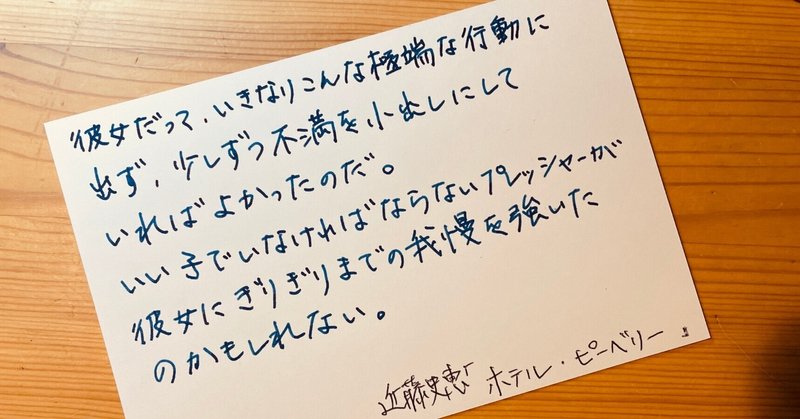 彼女だって、いきなりこんな極端な行動に
出ず、少しずつ不満を小出しにして
いればよかったのだ。
いい子でいなければならないプレッシャーが
彼女にぎりぎりまでの我慢を強いた
のかもしれない。
近藤史恵「ホテル・ピーベリー」